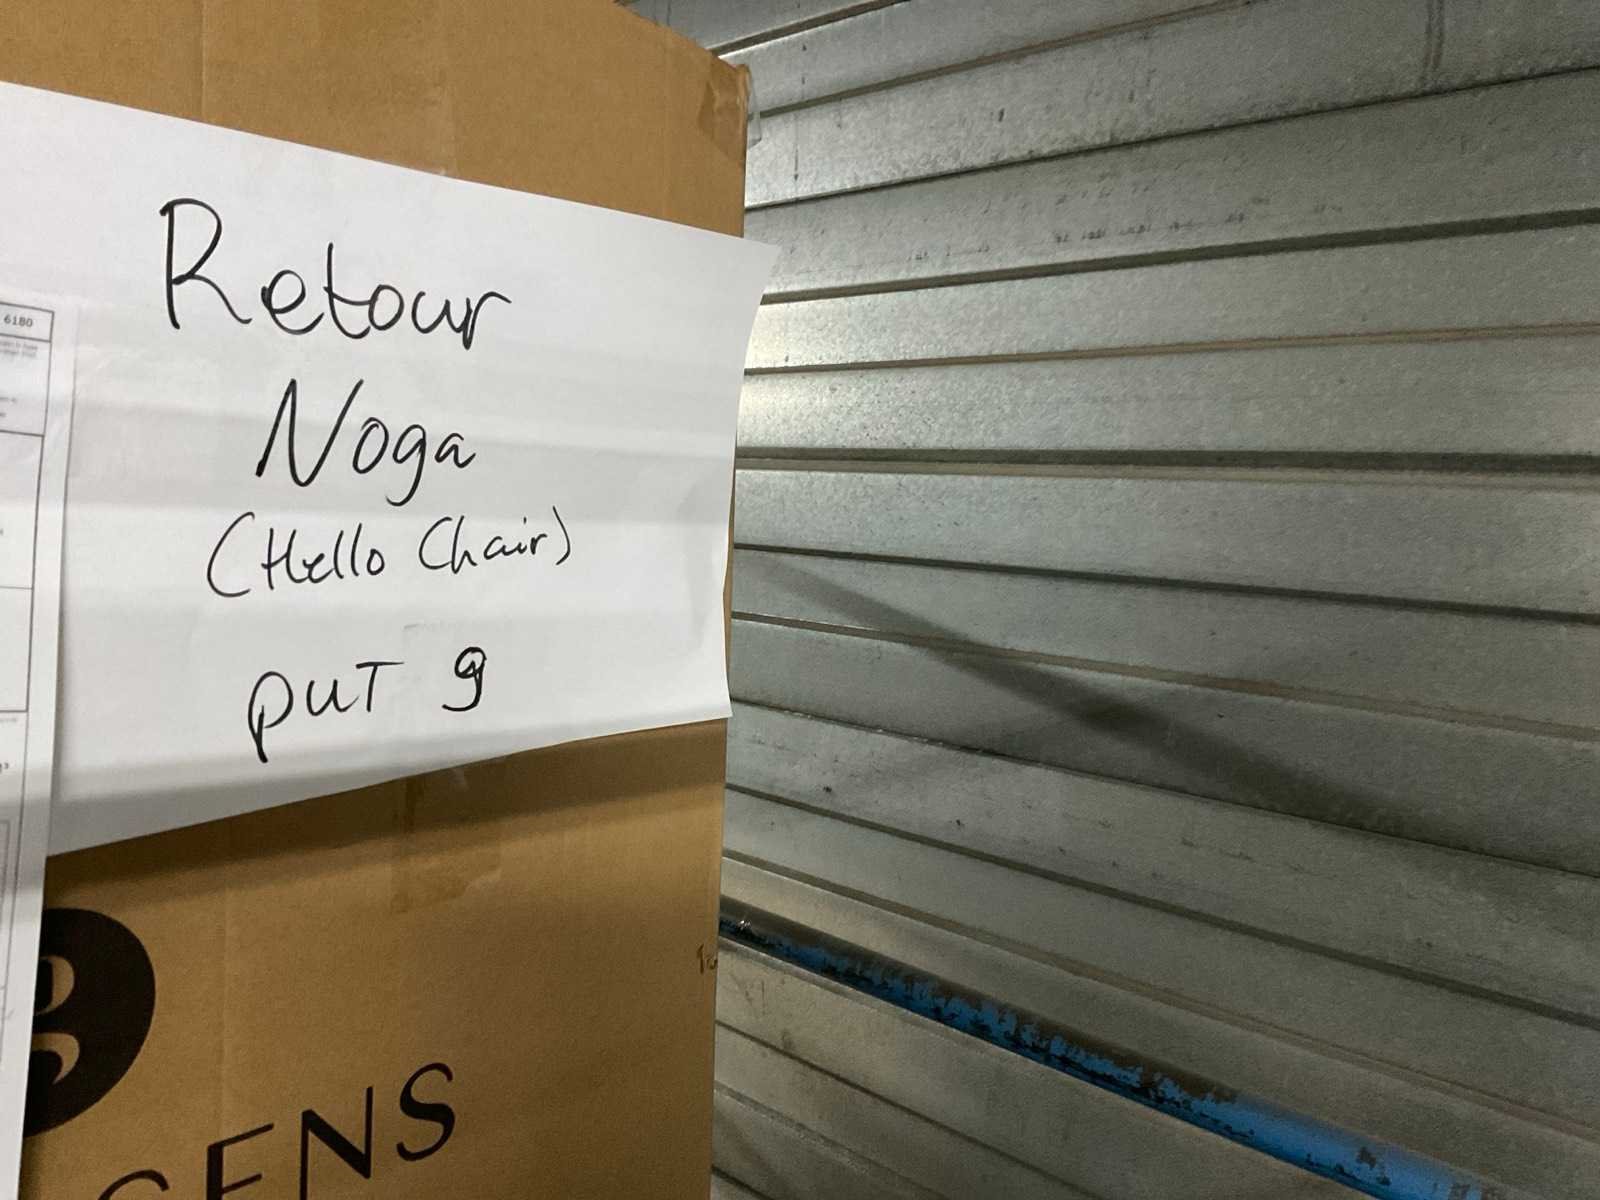 Retour
Noga
(Hello Chair)
PUT 9
6180
GENS